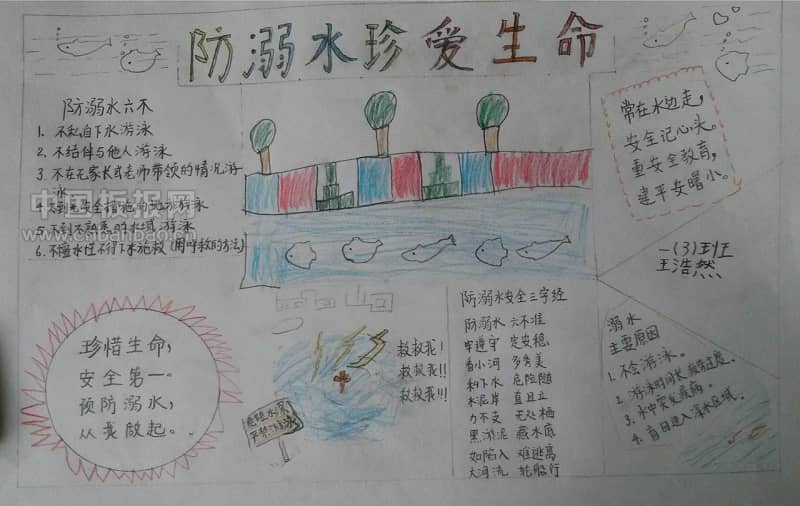 防溺水珍爱生命
防溺水六不
1、不私自下水游泳
2、不结伴与他人游泳
3、不在无家长或老师带领的情况游
泳
4、不到无安全措施的地方游泳
5、不到不熟悉的水域游泳
6、不擅水性不得下水施救(用呼救的方法)
中国板报网
www.cnbanbao.cn
常在水边走,
安全记心头。
重安全教育,
建平安曙小。
一(3)班
王浩然
珍惜生命,
安全第一。
预防溺水,
从我做起。
救救我!
救救我!!
救救我!!!
防溺水安全三字经
防溺水 六不准
牢遵守 定安稳
看小河 多秀美
私下水 危险随
水泥岸 直且立
力不支 无处栖
黑淤泥 藏水底
如陷入 难逃离
大河流 轮船行
溺水
主要原因
1、不会游泳。
2、游泳时间长 疲劳过度。
3、水中突发疾病。
4、盲目进入深水区域。